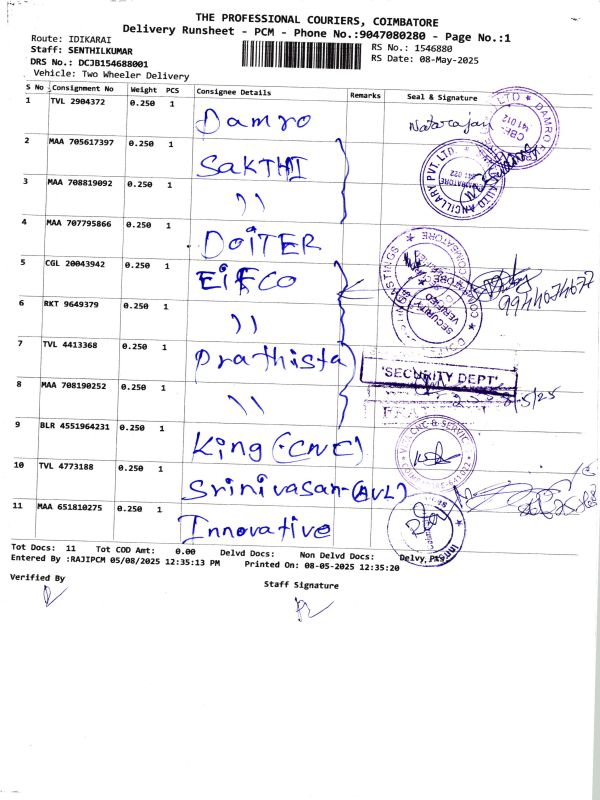 THE PROFESSIONAL COURIERS, COIMBATORE
Delivery Runsheet - PCM - Phone No.:9047080280 - Page No.:1
Route: IDIKARAI
RS No.: 1546880
Staff: SENTHILKUMAR
RS Date: 08-May-2025
DRS No.: DCJB154688001
Vehicle: Two Wheeler Delivery
S No Consignment No Weight PCS Consignee Details Remarks Seal & Signature
1 TVL 2904372 0.250 1 Damro Natarajan
2 MAA 705617397 0.250 1 SAKTHI
3 MAA 708819092 0.250 1 ))
4 MAA 707795866 0.250 1 DOITER
5 CGL 20043942 0.250 1 EIFCO 9944074677
6 RKT 9649379 0.250 1 ))
7 TVL 4413368 0.250 1 Prathista 'SECURITY DEPT'
8 MAA 708190252 0.250 1 \\
9 BLR 4551964231 0.250 1 King (CNC)
10 TVL 4773188 0.250 1 Srinivasan-(AVL)
11 MAA 651810275 0.250 1 Innovative
Tot Docs: 11 Tot COD Amt: 0.00 Delvd Docs: Non Delvd Docs: Delvy.
Entered By :RAJIPCM 05/08/2025 12:35:13 PM Printed On: 08-05-2025 12:35:20
Verified By
Staff Signature